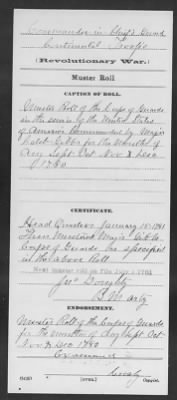 Commander in Chief's Guard
Continental Troops
(Revolutionary War.)
Muster Roll
CAPTION OF ROLL.
Muster Roll of the Corps of Guards
in the service of the United States
of America Commanded by Major
Caleb Gibbs for the Months of
Aug Sept Oct Nov & Dec
1780
CERTIFICATE.
Head Quarters January 15 1781
Then Mustered Major Gibbs
Corps of Guards as specified
in the above Roll
Next muster roll on file
ENDORSEMENT.
Muster Roll of the Corps of Guards
for the months of Aug Sept Oct
Nov & Dec 1780
Examined